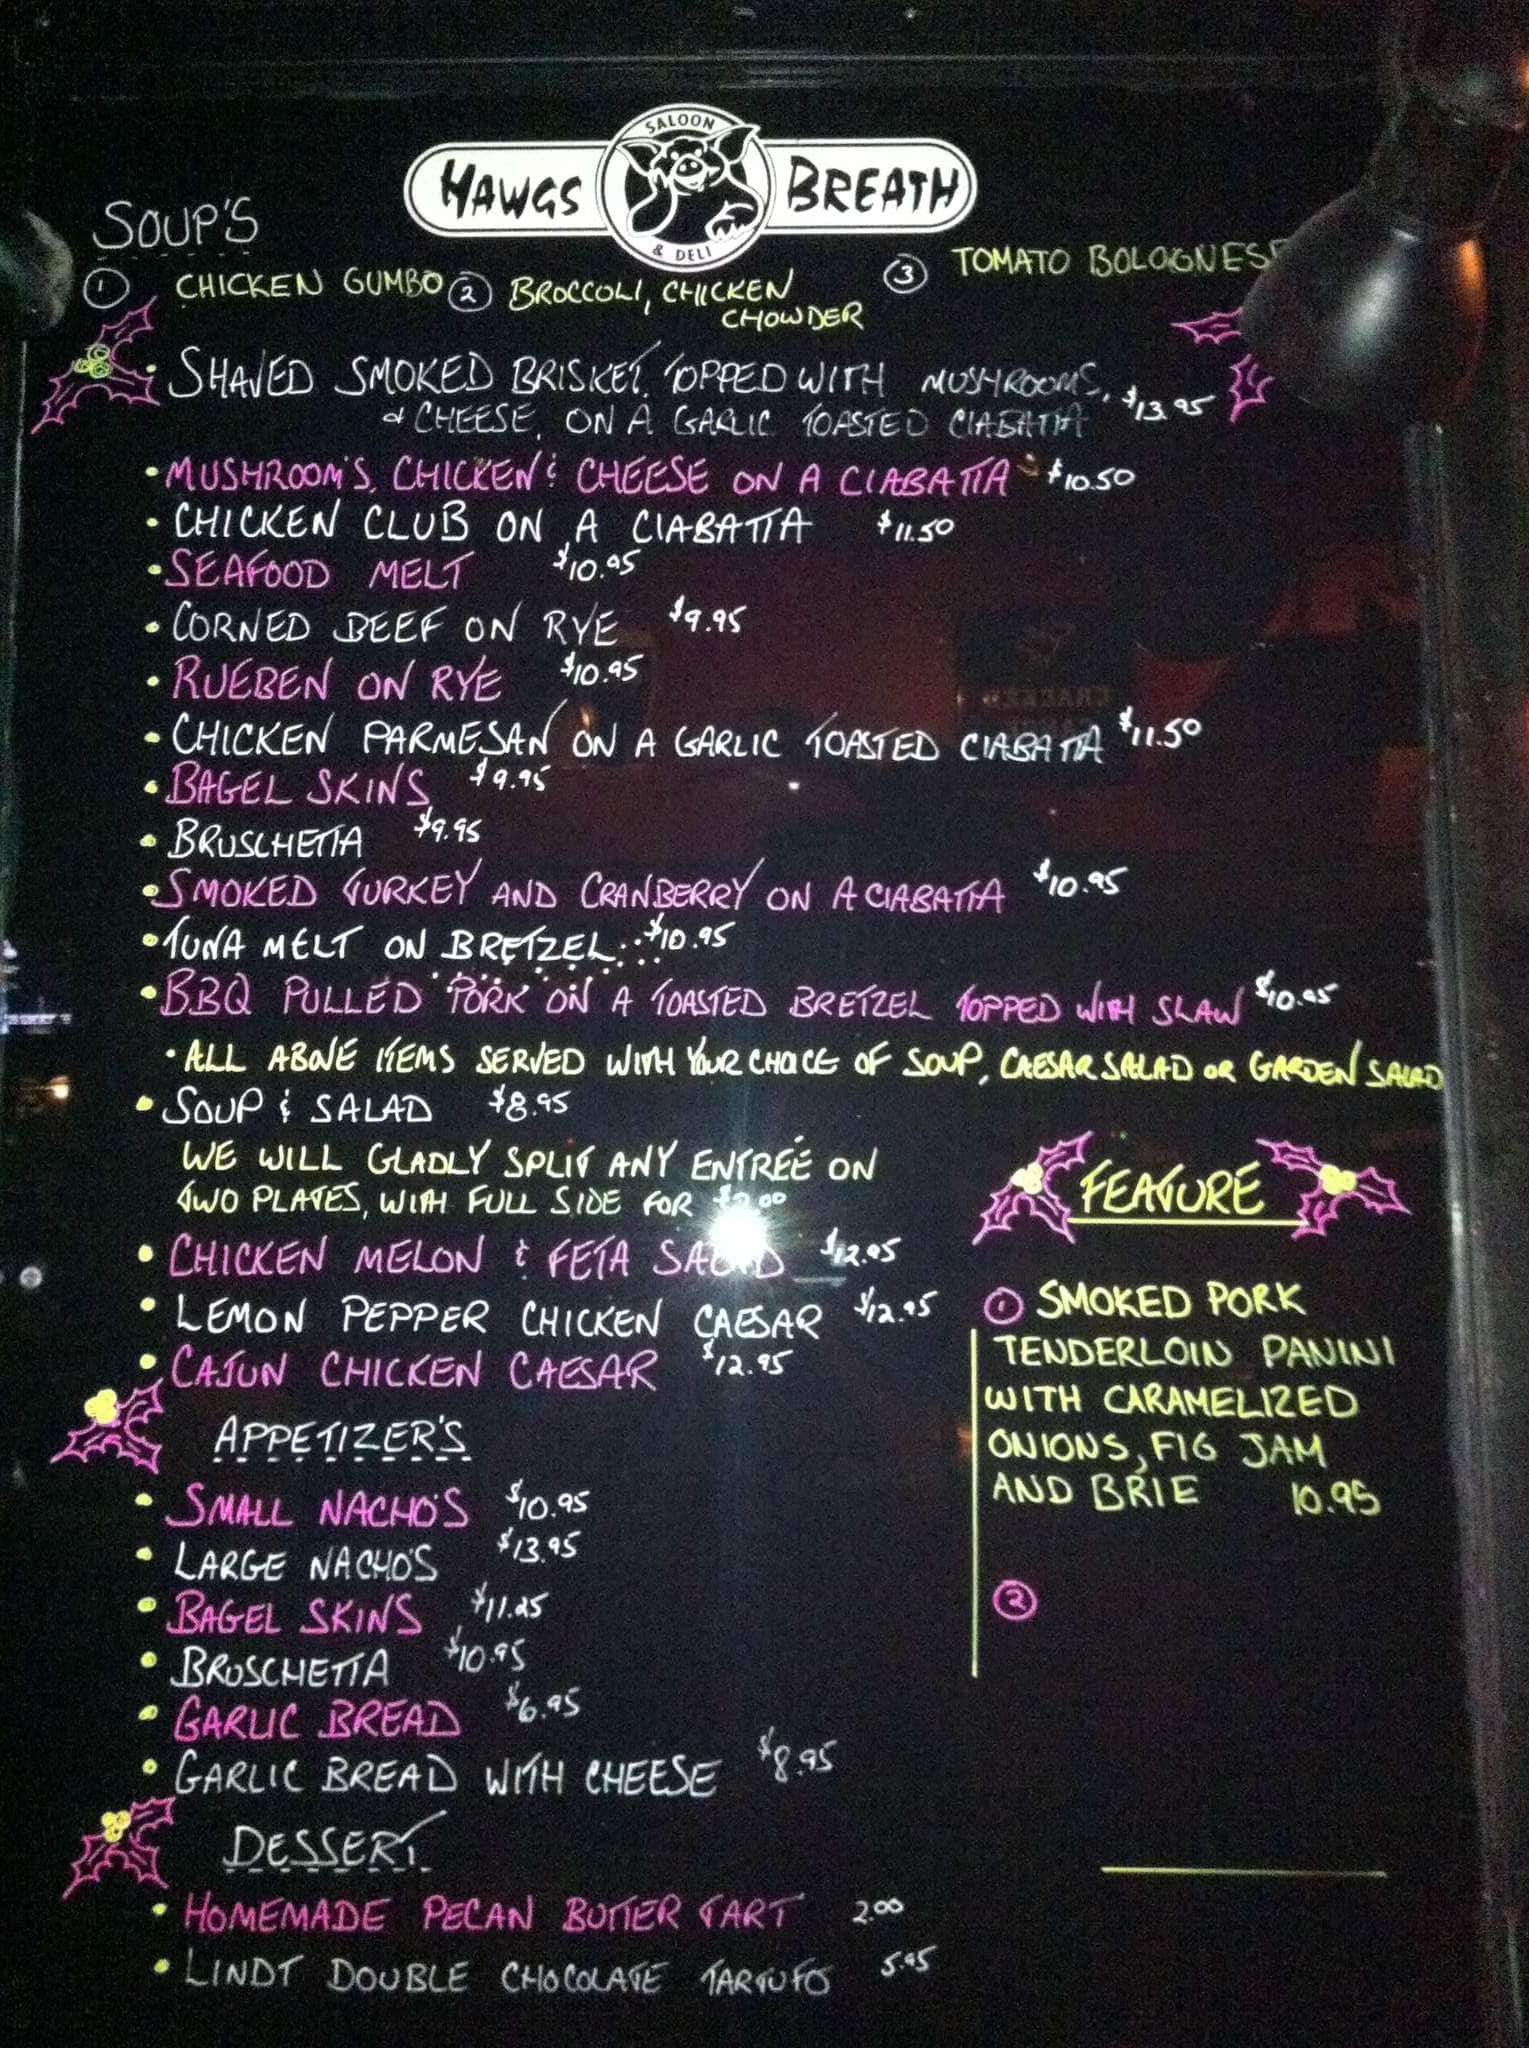 SALOON
HAWGS BREATH
& DELI
SOUP'S
① CHICKEN GUMBO ② BROCCOLI, CHICKEN CHOWDER ③ TOMATO BOLOGNESE
• SHAVED SMOKED BRISKET, TOPPED WITH MUSHROOMS,
& CHEESE, ON A GARLIC TOASTED CIABATTA $13.95
• MUSHROOM'S, CHICKEN & CHEESE ON A CIABATTA $10.50
• CHICKEN CLUB ON A CIABATTA $11.50
• SEAFOOD MELT $10.95
• CORNED BEEF ON RYE $9.95
• RUEBEN ON RYE $10.95
• CHICKEN PARMESAN ON A GARLIC TOASTED CIABATTA $11.50
• BAGEL SKINS $9.95
• BRUSCHETTA $9.95
• SMOKED TURKEY AND CRANBERRY ON A CIABATTA $10.95
• TUNA MELT ON BRETZEL $10.95
• BBQ PULLED PORK ON A TOASTED BRETZEL TOPPED WITH SLAW $10.95
• ALL ABOVE ITEMS SERVED WITH YOUR CHOICE OF SOUP, CAESAR SALAD OR GARDEN SALAD
• SOUP & SALAD $8.95
WE WILL GLADLY SPLIT ANY ENTRÉE ON
TWO PLATES, WITH FULL SIDE FOR
• CHICKEN MELON & FETA SALAD $12.95
• LEMON PEPPER CHICKEN CAESAR $12.95
• CAJUN CHICKEN CAESAR $12.95
APPETIZER'S
• SMALL NACHO'S $10.95
• LARGE NACHO'S $13.95
• BAGEL SKINS $11.25
• BRUSCHETTA $10.95
• GARLIC BREAD $6.95
• GARLIC BREAD WITH CHEESE $8.95
DESSERT
• HOMEMADE PECAN BUTTER TART 2.00
• LINDT DOUBLE CHOCOLATE TARTUFO 5.95
FEATURE
① SMOKED PORK
TENDERLOIN PANINI
WITH CARAMELIZED
ONIONS, FIG JAM
AND BRIE 10.95
②